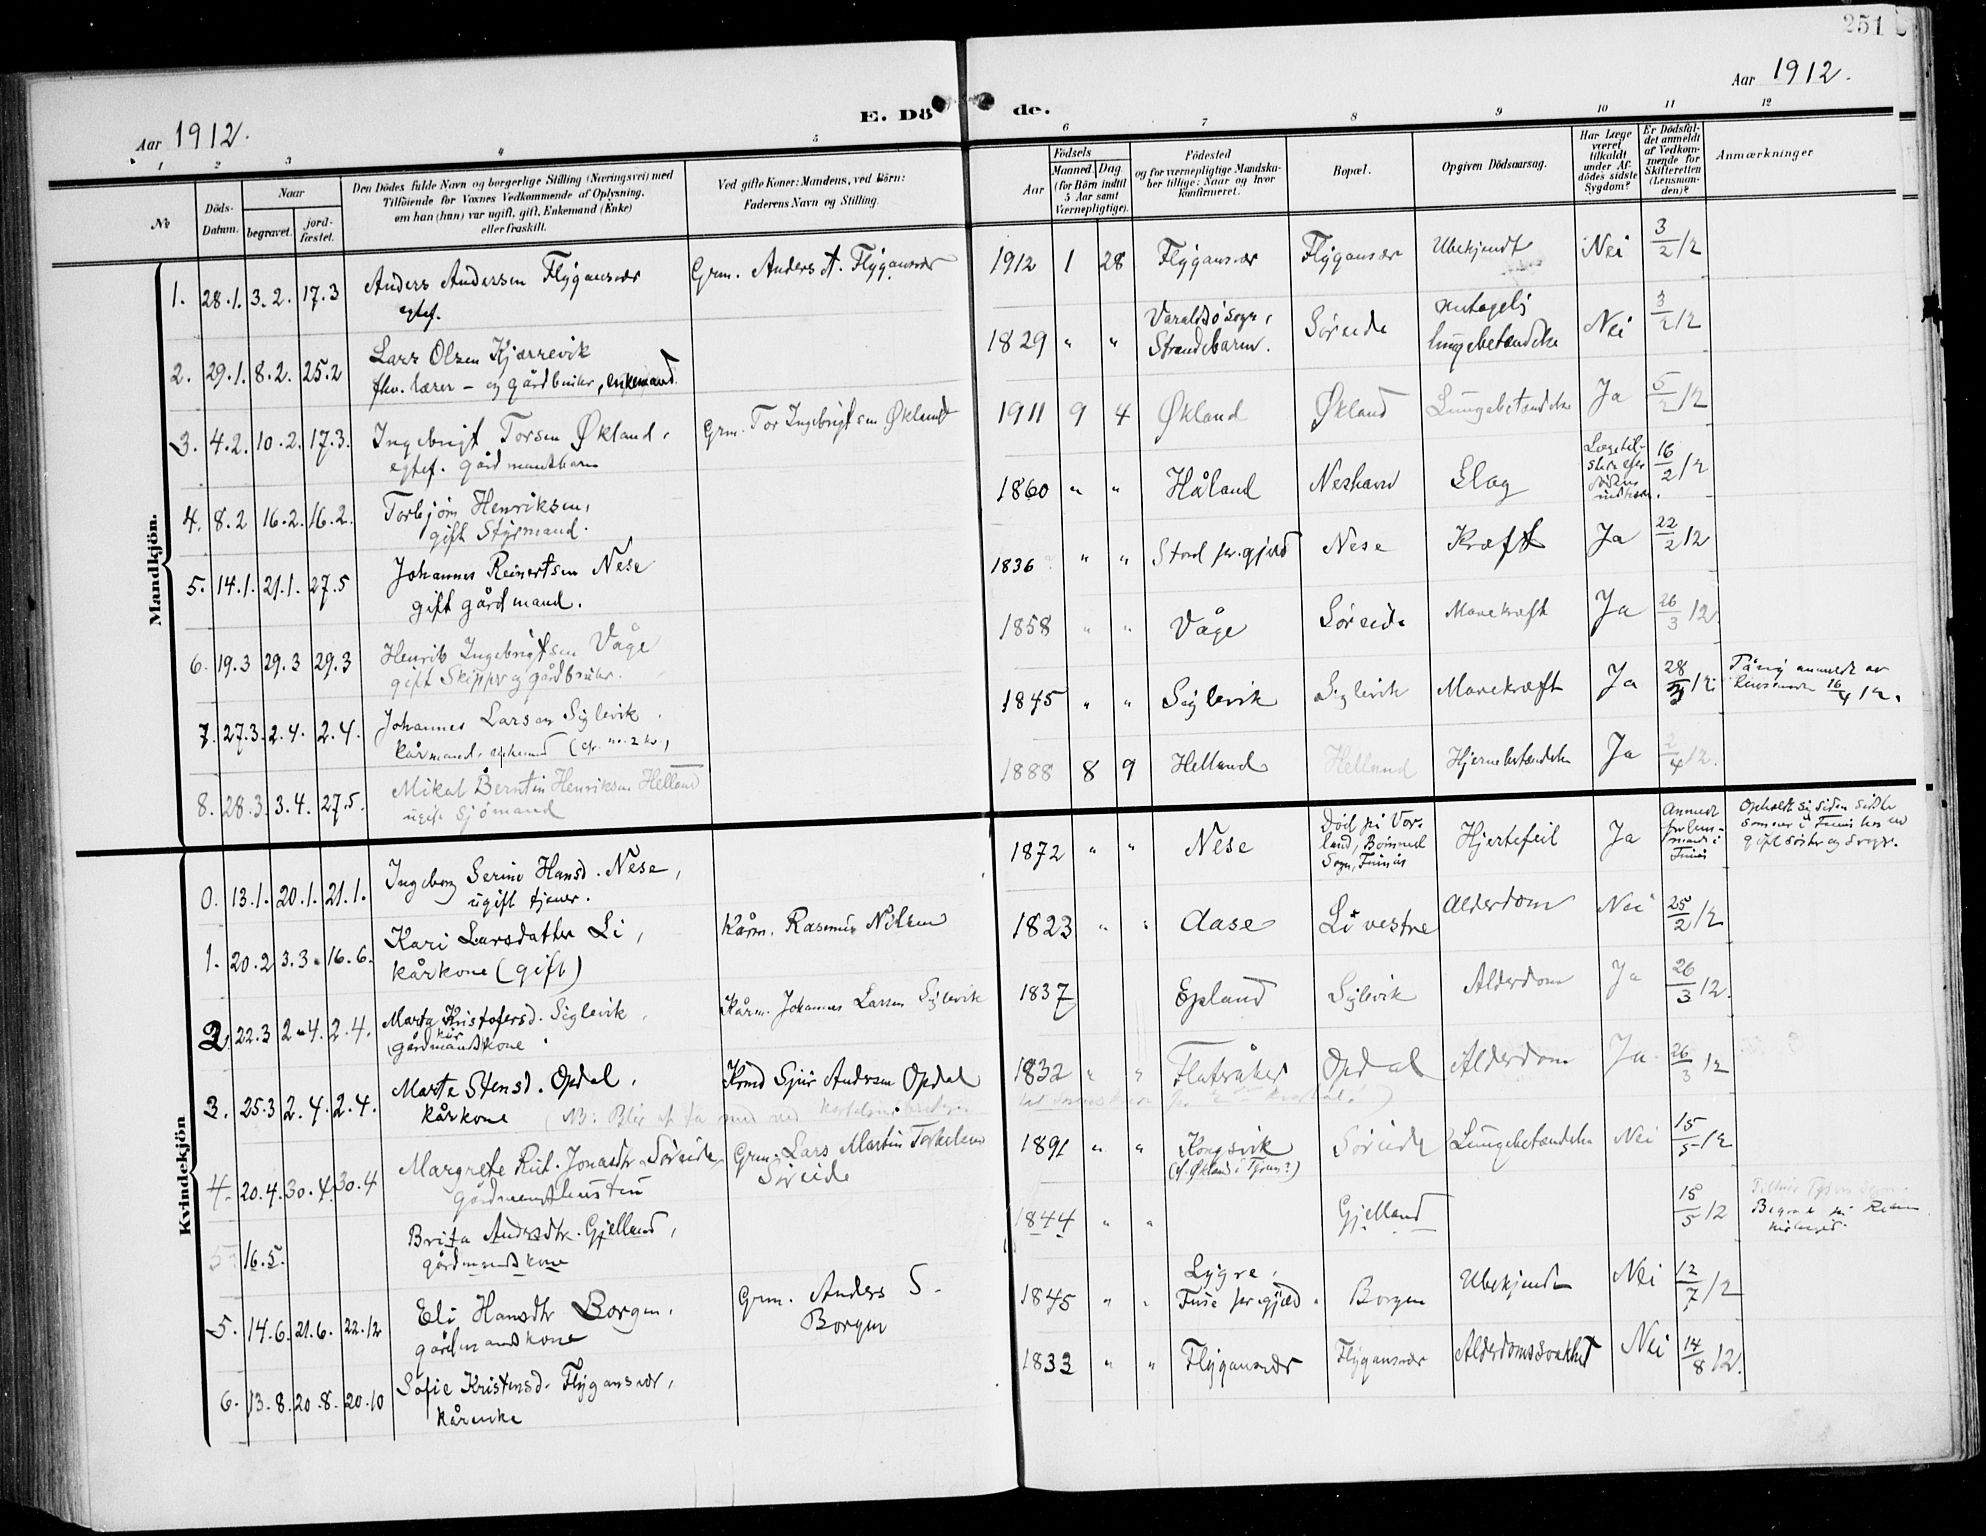 251
Aar 1912.
E. Døde.
Aar 1912.
1 2 3 4 5 6 7 8 9 10 11 12
No
Döds-Datum.
Naar
begravet.
jord-fæstet.
Den Dödes fulde Navn og borgerlige Stilling (Næringsvei) med
Tilföiende for Voxnes Vedkommende af Oplysning,
om han (hun) var ugift, gift, Enkemand (Enke)
eller fraskilt.
Ved gifte Koner: Mandens, ved Börn:
Faderens Navn og Stilling.
Födsels
Aar
Maaned.
Dag.
(for Börn indtil
5 Aar samt
Værnepligtige).
Födested
og for værnepligtige Mandska-
ber tillige: Naar og hvor
konfirmeret.
Bopæl.
Opgiven Dödsaarsag.
Har Læge
været
tilkaldt
under Af-
dödes sidste
Sygdom?
Er Dödsfal-
det anmeldt
af Vedkom-
mende for
Skifteretten
(Lensman-
den)?
Anmærkninger
Mandkjön.
1. 28.1. 3.2. 17.3 Anders Andersen Flygansvær Grm. Anders A. Flygansvær 1912 1 28 Flygansvær Flygansvær Ubekjendt Nei 3/2 12
egtef.
2. 29.1. 8.2. 25.2 Lars Olsen Kjærrevik 1829 " " Varaldsö sogn, Strandebarm. Søreide antagelig lungebetændelse Nei 3/2 12
fhv. lærer - og gårdbruker, enkemand.
3. 4.2. 10.2. 17.3. Ingebrigt Torsen Økland, Grm. Tor Ingebrigtsen Økland 1911 9 4 Økland Økland Lungebetændelse Ja 5/2 12
egtef. gårdmandsbarn
4. 8.2 16.2. 16.2. Torbjørn Henriksen, 1860 " " Håland Neshavn Slag 16/2 12
gift Styrmand.
5. 14.1. 21.1. 27.5 Johannes Reinertsen Nese 1836 " " Stord pr.gjeld Nese Kræft Ja 22/2 12
gift gårdmand.
6. 19.3 29.3 29.3 Henrik Ingebrigtsen Våge 1858 " " Våge Søreide Mavekræft Ja 26/3 12
gift Skipper og gårdbruker.
7. 27.3. 2.4. 2.4. Johannes Larsen Siglevik 1845 " " Siglevik Siglevik Mavekræft Ja 28/3 12
kårmand, enkemand (cfr. nr. 2 kv.) 16/4 12.
8. 28.3. 3.4. 27.5. Mikal Berntin Henriksen Helland 1888 8 9 Helland Helland Hjernebetændelse Ja 2/4 12.
ugift Sjömand
Kvindekjön
0. 13.1. 20.1. 21.1. Ingeborg Serine Hansd. Nese, 1872 " " Nese Død på Vorland, Bømmel Sogn, Finnås Hjertefeil Ja Anmeldt for lensmand i Finnås
ugift tjener.
1. 20.2 3.3. 16.6. Kari Larsdatter Li, Kårm. Rasmus Nilsen 1823 " " Aase Li vestre Alderdom Nei 25/2 12
kårkone (gift)
2. 22.3 2.4. 2.4. Marta Kristofersd. Siglevik, Kårm. Johannes Larsen Siglevik 1837 Epland Siglevik Alderdom Ja 26/3 12.
gårdmandskone kår
3. 25.3 2.4. 2.4. Marta Stensd. Opdal, Kmd Sjur Andersen Opdal 1832 " " Flatråker Opdal Alderdom Ja 26/3 12
kårkone
4. 20.4. 30.4. 30.4 Margrete Jonasdtr. Søreide Grm. Lars Martin Torkelsen Søreide 1891 " " Kongsvik (cf. Økland i Tysnes?) Søreide Lungebetændelse Nei 15/5 12
gårdmandshustru
5. 16.5. Brita Andersdtr. Gjelland, 1844 " " Gjelland 15/5 12
gårdmandskone
5. 14.6. 21.6. 22.12 Eli Hansdtr Borgen, Grm. Anders S. Borgen 1845 " " Lygre, Fuse pr.gjæld. Borgen Ubekjendt Nei 12/7 12
gårdmandskone
6. 13.8. 20.8. 20.10 Sofie Kristensd. Flygansvær, 1833 " " Flygansvær Flygansvær Alderdomssvakhet Nei 14/8 12.
kårenke